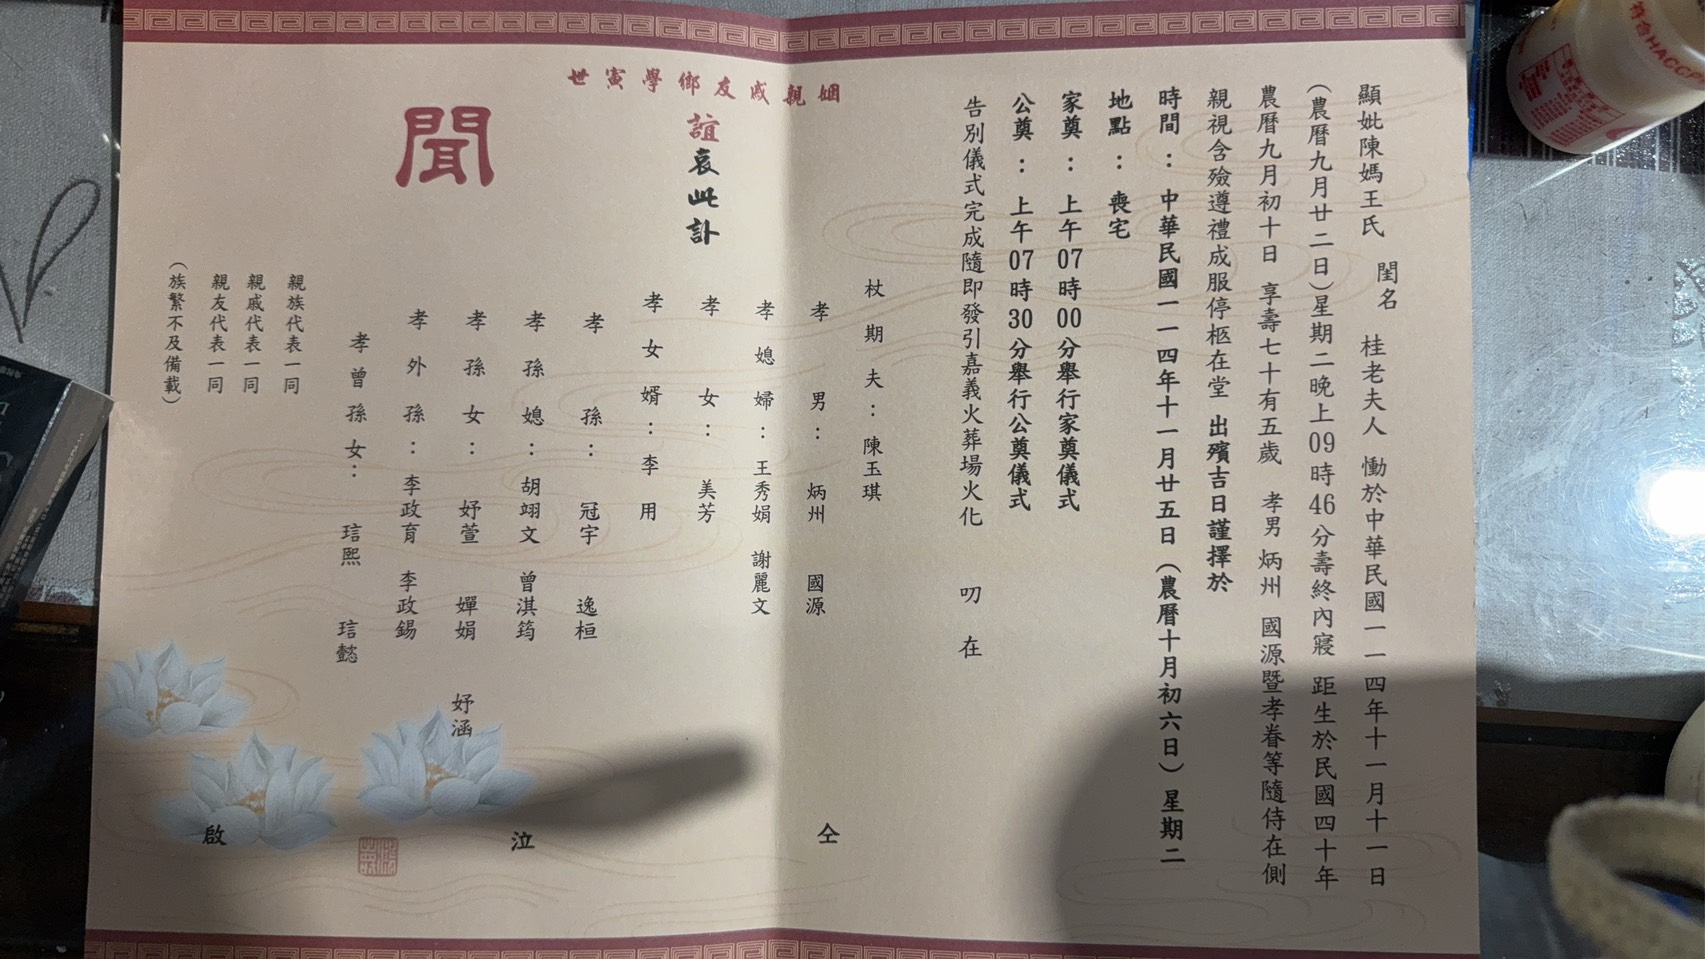 顯妣陳媽王氏 閨名 桂老夫人 慟於中華民國一一四年十一月十一日
(農曆九月廿二日)星期二晚上09時46分壽終內寢 距生於民國四十年
農曆九月初十日 享壽七十有五歲 孝男 炳州 國源暨孝眷等隨侍在側
親視含殮遵禮成服停柩在堂 出殯吉日謹擇於
時間:中華民國一一四年十一月廿五日(農曆十月初六日)星期二
地點:喪宅
家奠:上午07時00分舉行家奠儀式
公奠:上午07時30分舉行公奠儀式
告別儀式完成隨即發引嘉義火葬場火化 叨在
姻親戚友鄉學寅世
誼哀此訃
聞
杖期夫:陳玉琪
孝男:炳州 國源
孝媳婦:王秀娟 謝麗文
孝女:美芳
孝女婿:李用
孝孫:冠宇 逸桓
孝孫媳:胡翊文 曾淇筠
孝孫女:妤萱 嬋娟 妤涵
孝外孫:李政育 李政錫
孝曾孫女:琂熙 琂懿
親族代表一同
親戚代表一同
親友代表一同
(族繁不及備載)
仝 泣 啟
符合HACCP